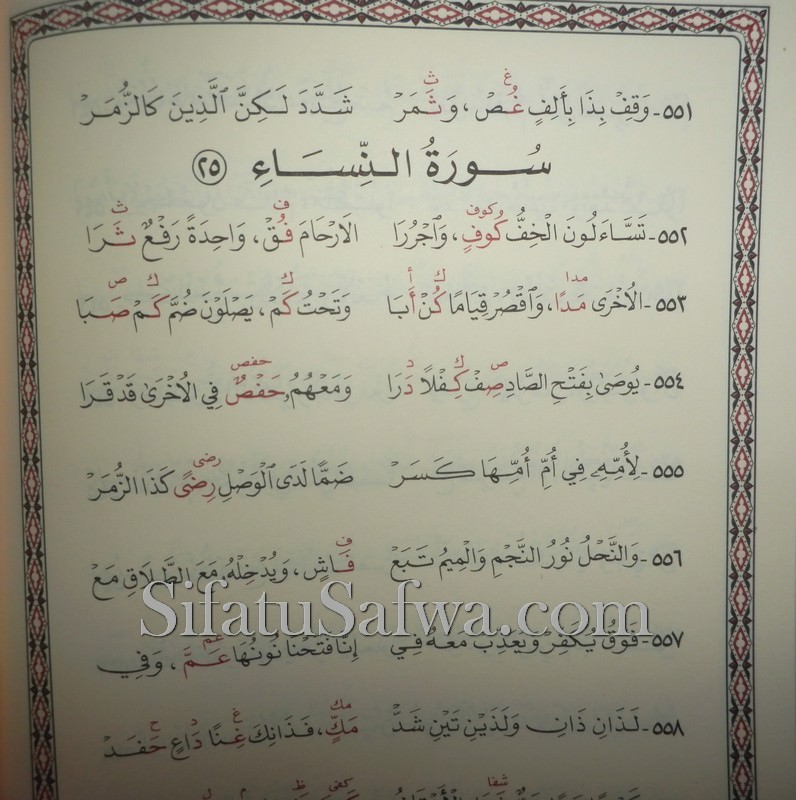 ٥٥١- وَقِفْ بِذَا بِأَلِفٍ غُصْ، وَثَمَرْ شَدَّدَ لَكِنَّ الَّذِينَ كَالزُّمَرْ
سُورَةُ النِّسَاءِ (٢٥)
٥٥٢- تَسَّاءَلُونَ الْخِفُّ كُوفٍ، وَاجْرُرَا الَارْحَامَ فُقْ، وَاحِدَةً رَفْعٌ ثَرَا
٥٥٣- الُاخْرَى مَدًا، وَاقْصُرْ قِيَامًا كُنْ أَبَا وَتَحْتُ كَمْ، يَصْلَوْنَ ضُمَّ كَمْ صَبَا
٥٥٤- يُوصَىٰ بِفَتْحِ الصَّادِ صِفْ كِفْلًا دَرَا وَمَعْهُمُ حَفْصٌ فِي الُاخْرَىٰ قَدْ قَرَا
٥٥٥- لِأُمِّهِ فِي أُمِّ أُمِّهَا كَسَرْ ضَمًّا لَدَى الْوَصْلِ رِضًى كَذَا الزُّمَرْ
٥٥٦- وَالنَّحْلُ نُورُ النَّجْمِ وَالْمِيمُ تَبَعْ فَاشٍ، وَيُدْخِلْهُ مَعَ الطَّلَاقِ مَعْ
SifatuSafwa.com
٥٥٧- فَوْقُ يُكَفِّرْ وَيُعَذِّبْ مَعْهُ فِي إِنَّا فَتَحْنَا نُونُهَا عَمَّ، وَفِي
٥٥٨- لَذَانِ ذَانِ وَلَذَيْنِ تَيْنِ شَدْ مَكٍّ، فَذَانِكَ غِنًا دَاعٍ حَفَدْ